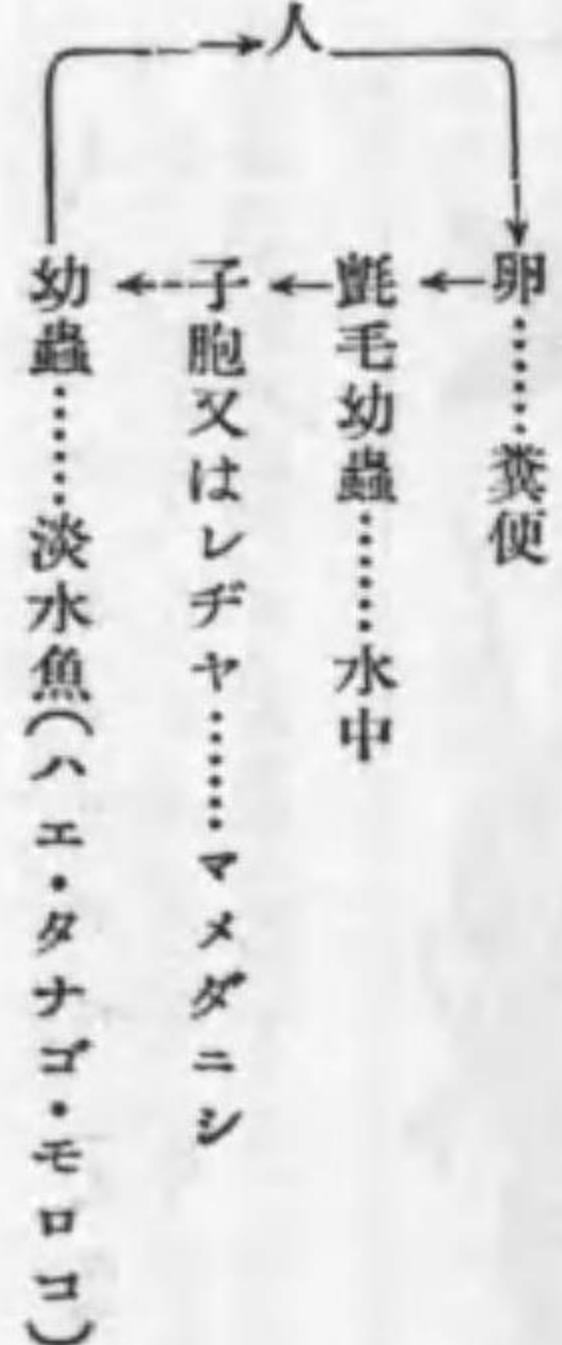 人
卵……糞便
氈毛幼蟲……水中
子胞又はレヂヤ……マメダニシ
幼蟲……淡水魚(ハエ・タナゴ・モロコ)